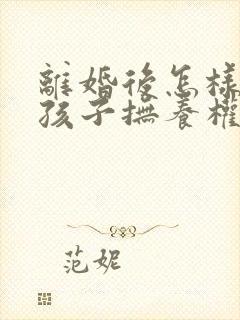 離婚後怎樣
孩子撫養權
范妮